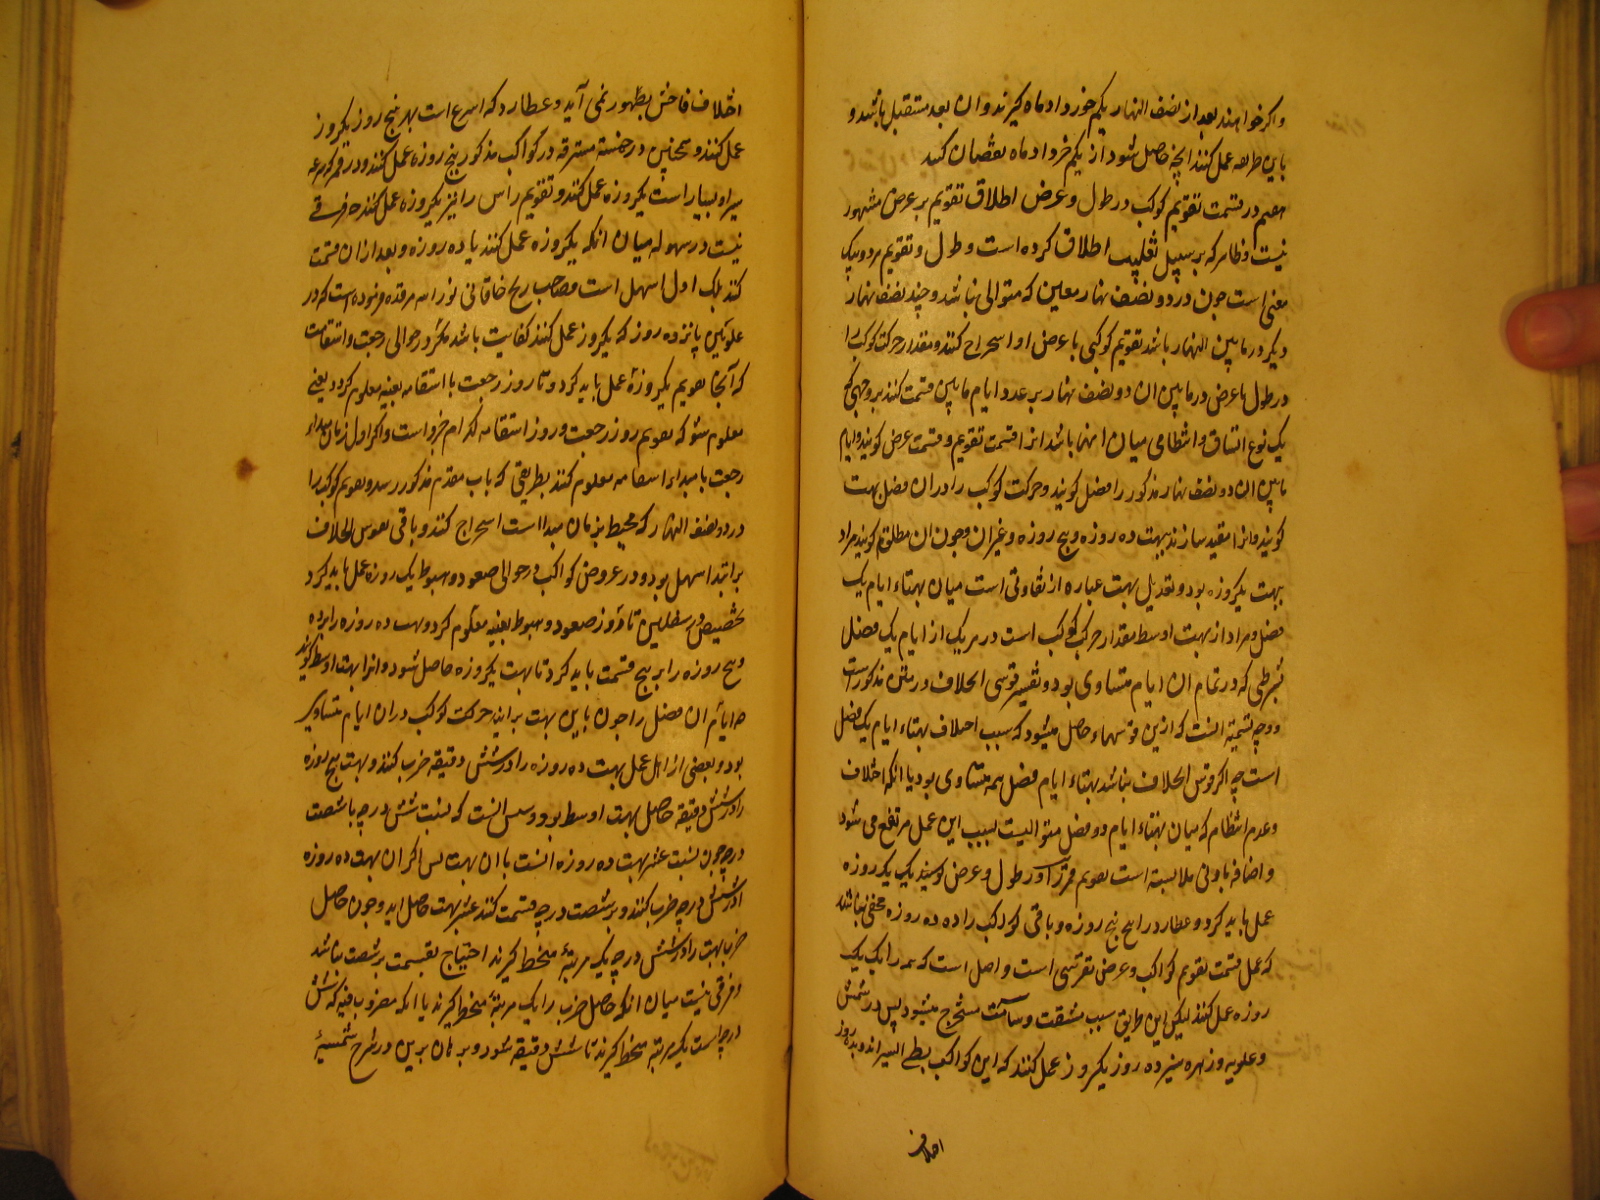 واکر خواهند بعد از نصف النهار یکم خورداد ماه کیرند و ان بعد مستقبل باشد و
باین طریقه عمل کنند انچه حاصل شود از یکم خرداد ماه نقصان کنند
در قسمت تقویم کوکب در طول و عرض اطلاق تقویم بر عرض مشهور
نیست و ظاهر که بر سبیل تغلیب اطلاق کرده است و طول و تقویم هر دو بیک
معنی است جون در دو نصف نهار معین که متوالی نباشد و چند نصف نهار
دیکر در مابین النهار باشد تقویم کوکبی با عرض او استخراج کنند و مقدار حرکت کوکب را
در طول یا عرض در مابین ان دو نصف نهار بر عدد ایام مابین قسمت کنند بر وجهی که
یک نوع اتساق و انتظامی میان انها باشد انرا قسمت تقویم و قسمت عرض کویند و ایام
مابین ان دو نصف نهار مذکور را فصل کویند و حرکت کوکب را در ان فصل بهت
کویند و انرا مقید سازند ببهت ده روزه و پنج روزه و غیر ان و جون ان مطلق کویند مراد
بهت یکروزه بود و تعدیل بهت عباره از تفاوتی است میان بهتاء ایام یک
فصل و مراد از بهت اوسط مقدار حرکت کوکب است در هر یک از ایام یک فصل
بشرطی که در تمام ان ایام متساوی بود و تفسیر قوسی الخلاف در متن مذکور است
و وجه تسمیه انست که ازین قوسهاء حاصل میشود که سبب اختلاف بهتاء ایام یک فصل
است چه اکر قوس الخلاف نباشد بهتاء ایام فصل همه متساوی بود یا انکه اختلاف
و عدم انتظام که میان بهتاء ایام دو فصل متوالیست بسبب این عمل مرتفع می شود
و اضافه بادنی ملابسه است تقویم قمر را در طول و عرض یک یک روزه
عمل باید کرد و عطارد را پنج پنج روزه و باقی کواکب را ده ده روزه مخفی نباشد
که عمل قسمت تقویم کواکب و عرض تقریبی است و اصل است که همه را یک یک
روزه عمل کنند لیکن این طریق سبب مشقت و سآمت مستخرج میشود پس در شمس
و علویه و زهره هر ده روز یکروز عمل کنند که این کواکب بطئ السیر اند و بده روز
اختلاف
اختلاف فاحش بظهور نمی آید و عطارد که اسرع است بهر پنج روز یکروز
عمل کنند و همچنین در خمسه مسترقه در کواکب مذکور پنج روزه عمل کنند و در قمر که سرعه
سیر او بسیار است یکروزه عمل کنند و تقویم راس را نیز یکروزه عمل کنند چه فرقی
نیست در سهوله میان انکه یکروزه عمل کنند یا ده روزه و بعد از ان قسمت
کنند بلک اول اسهل است و صاحب زیج خاقانی نور الله مرقده فرموده است که در
علویین پانزده روز که یکروز عمل کنند کفایت باشد مکر در حوالی رجعت و استقامت
که آنجا تقویم یکروزه عمل باید کرد و تا روز رجعت یا استقامه بعینه معلوم کردد یعنی
معلوم شود که تقویم روز رجعت و روز استقامه کدام جزو است و اکر اول زمان مبداء
رجعت یا مبداء استقامه معلوم کنند بطریقی که باب مقدم مذکور رسد و تقویم کوکب را
در دو نصف النهار که محیط بزمان مبدا است استخراج کنند و باقی بقوس الخلاف
براتبد اسهل بود و در عروض کواکب در حوالی صعود و هبوط یک روزه عمل باید کرد
بتخصیص در سفلیین تا روز صعود و هبوط بعینه معلوم کردد و بهت ده روزه را بر ده
و پنج روزه را بر پنج قسمت باید کرد تا بهت یکروزه حاصل شود و انرا بهت اوسط کویند
چه ایام ان فصل را جون باین بهت براند حرکت کوکب در ان ایام متساوی
بود و بعضی از اهل عمل بهت ده روزه را در شش دقیقه ضرب کنند و بهت پنج روزه
را در شش دقیقه حاصل بهت اوسط بود و سرش انست که نسبت شش درجه با شصت
درجه جون نسبت عشر بهت ده روزه است با ان بهت پس اکر ان بهت ده روزه
را در شش درجه ضرب کنند و بر شصت درجه قسمت کنند عشر بهت حاصل اید و جون حاصل
ضرب بهت را در شش درجه یک مرتبه منحط کیرند احتیاج بقسمت بر شصت نباشد
و فرقی نیست میان انکه حاصل ضرب را یک مرتبه منحط کیرند یا انکه مضروب فیه که شش
درجه است یکمرتبه منحط کیرند تا شش دقیقه شود و برهان برین در شرح شمسیه